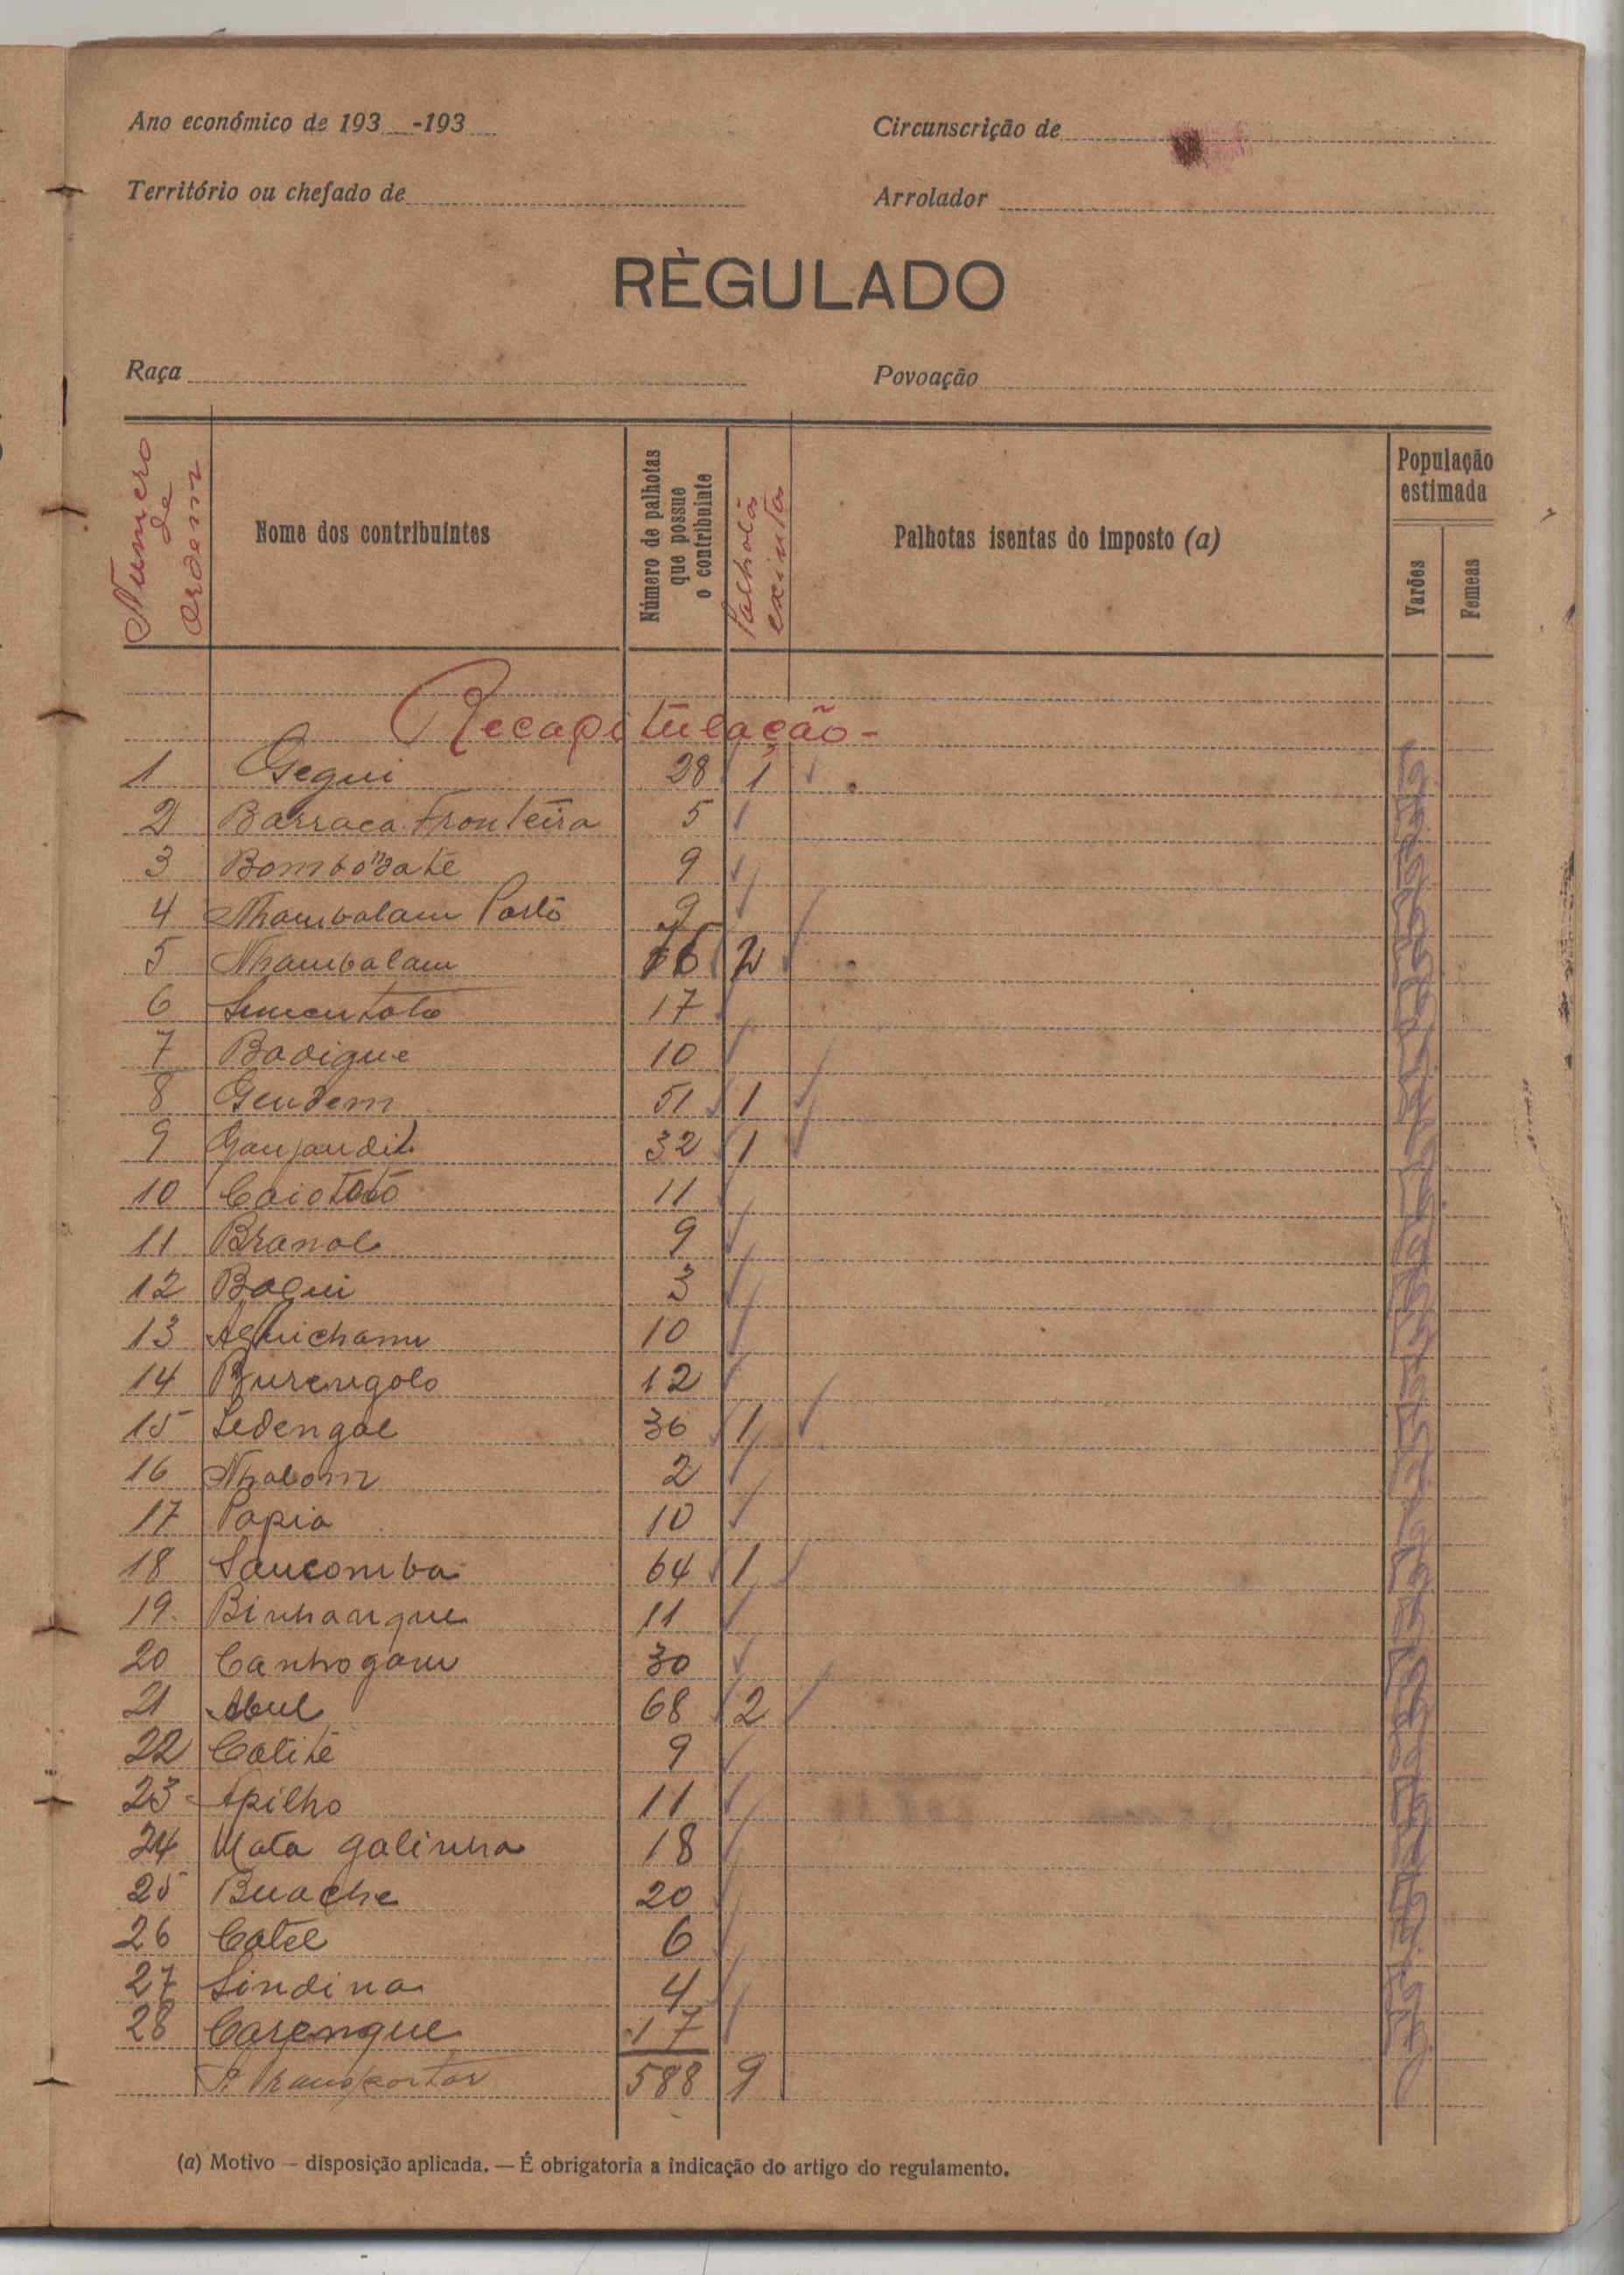 Ano económico de 193 -193
Circunscrição de
Território ou chefado de
Arrolador
RÈGULADO
Raça
Povoação
Numero de ordem
Nome dos contribuintes
Número de palhotas que possue o contribuinte
Palhotas exintas
Palhotas isentas do imposto (a)
População estimada
Varões
Femeas
Recapitulação -
1 Gegui 28 1
2 Barraca Fronteira 5
3 9
4 Nhambalam Porto 9
5 Nhambalam 76 2
6 17
7 Badigue 10
8 Gendem 51 1
9 Ganjandit 32 1
10 11
11 Branal 9
12 Baqui 3
13 10
14 Burengolo 12
15 Sedengal 36 1
16 Nhalom 2
17 Papia 10
18 Sancomba 64 1
19 Binhangue 11
20 Canhogam 30
21 Abul 68 2
22 Catite 9
23 Apilho 11
24 Mata galinha 18
25 Buache 20
26 Catel 6
27 Sindina 4
28 Carengue 17
A transportar 588 9
(a) Motivo — disposição aplicada. — É obrigatoria a indicação do artigo do regulamento.